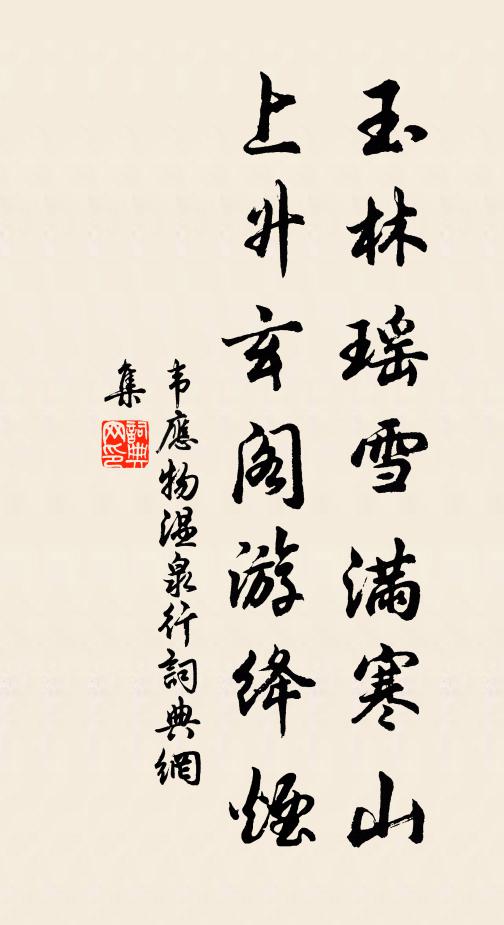 玉林瑶雪满寒山
上升玄阁游绛烟
韦應物温泉行詞典網
集
詞典网印